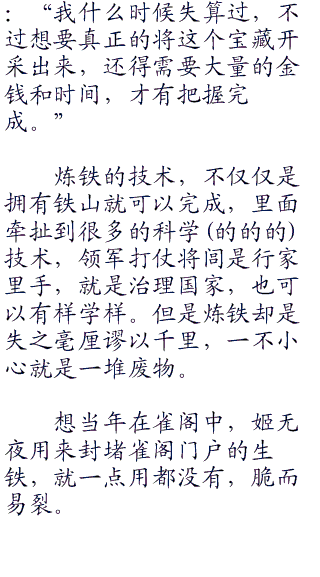 ：“我什么时候失算过，不
过想要真正的将这个宝藏开
采出来，还得需要大量的金
钱和时间，才有把握完
成。”
炼铁的技术，不仅仅是
拥有铁山就可以完成，里面
牵扯到很多的科学(的的的)
技术，领军打仗将间是行家
里手，就是治理国家，也可
以有样学样。但是炼铁却是
失之毫厘谬以千里，一不小
心就是一堆废物。
想当年在雀阁中，姬无
夜用来封堵雀阁门户的生
铁，就一点用都没有，脆而
易裂。